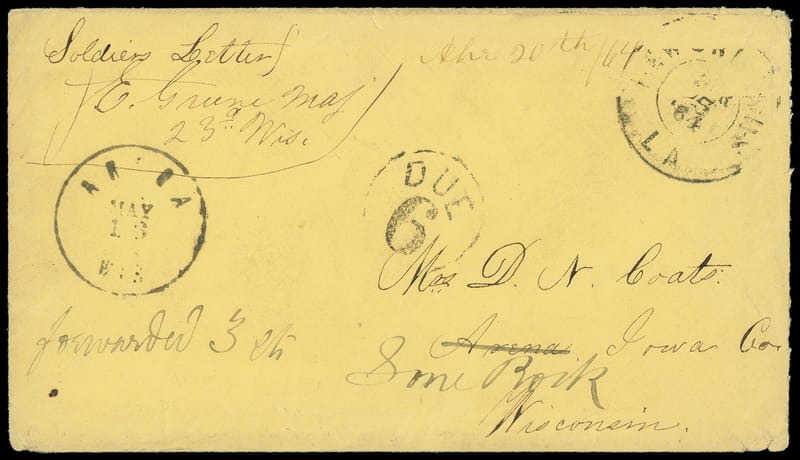 Soldiers Letter
E. Greene Maj
23d Wis.
Apr 20th /64
64
LA
MAY
13
WIS
DUE
6
Mrs D. N. Coats.
Arena Iowa Co.
Lone Rock
Wisconsin.
forwarded 3 cts